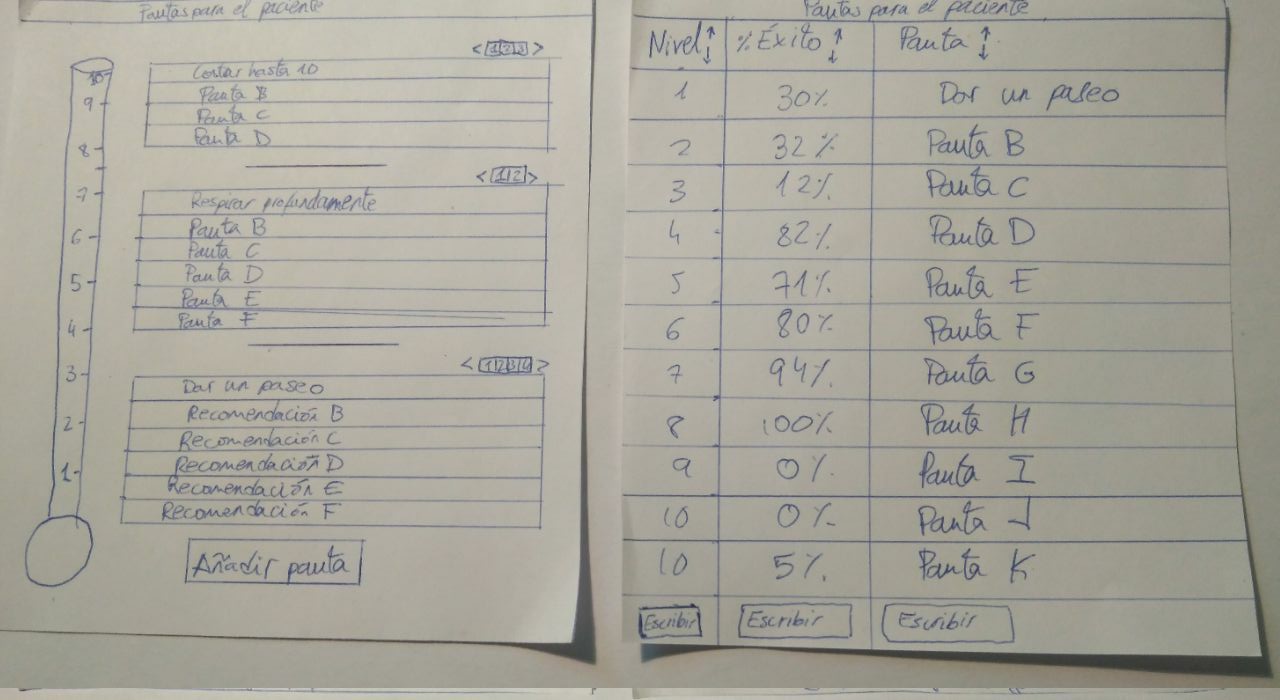 Pautas para el paciente
< 1 2 3 >
10
9
8
7
6
5
4
3
2
1
Contar hasta 10
Pauta B
Pauta C
Pauta D
< 1 2 >
Respirar profundamente
Pauta B
Pauta C
Pauta D
Pauta E
Pauta F
< 1 2 3 4 >
Dar un paseo
Recomendación B
Recomendación C
Recomendación D
Recomendación E
Recomendación F
Añadir pauta
Pautas para el paciente
Nivel ↑↓ % Éxito ↑↓ Pauta ↑↓
1 30% Dar un paseo
2 32% Pauta B
3 12% Pauta C
4 82% Pauta D
5 71% Pauta E
6 80% Pauta F
7 94% Pauta G
8 100% Pauta H
9 0% Pauta I
10 0% Pauta J
10 5% Pauta K
Escribir Escribir Escribir